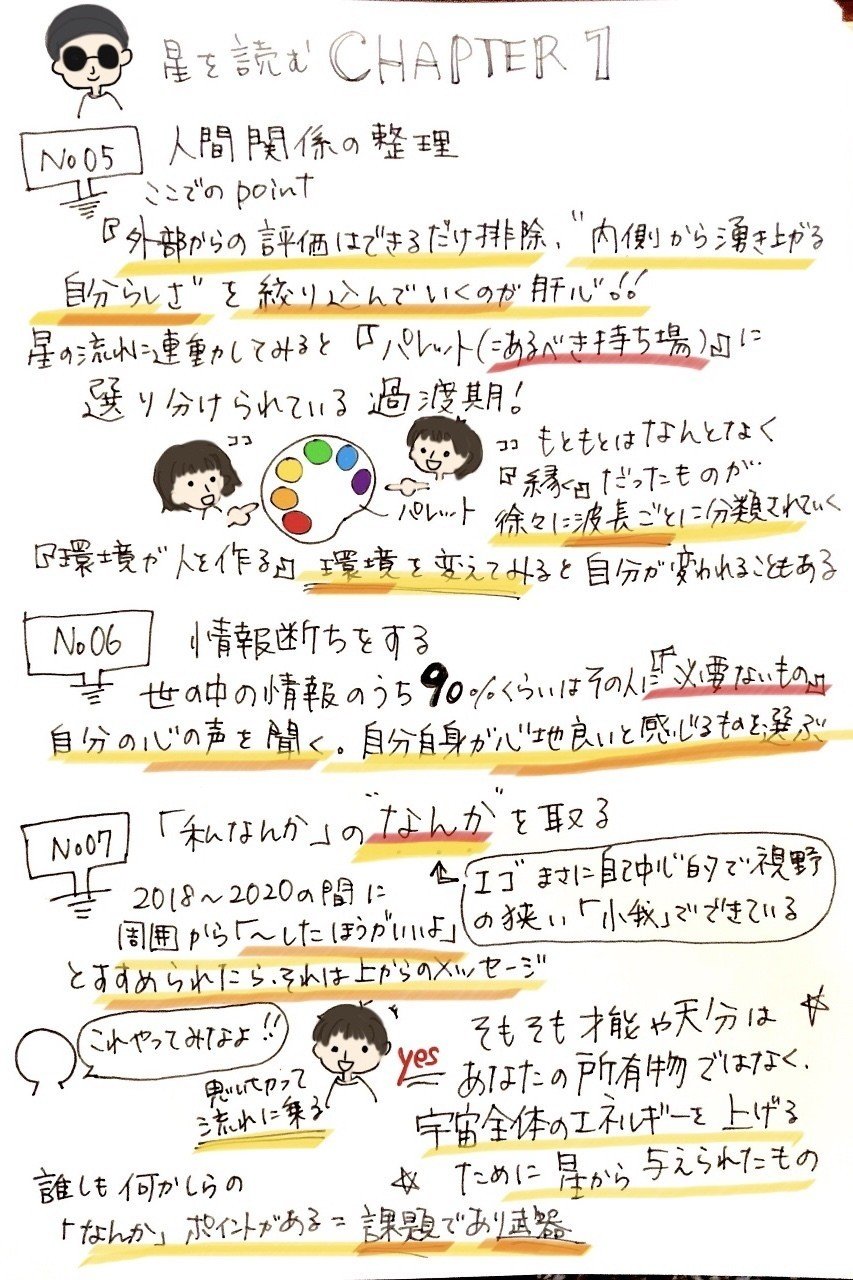 星を読む CHAPTER 1
No05 人間関係の整理
ここでのpoint
『外部からの評価はできるだけ排除、"内側から湧き上がる
自分らしさ"を絞り込んでいくのが肝心!!
星の流れに連動してみると『パレット(=あるべき持ち場)』に
選り分けられている過渡期!
ココ
ココ もともとはなんとなく
『縁』だったものが
パレット
徐々に波長ごとに分類されていく
『環境が人を作る』環境を変えてみると自分が変われることもある
No06 情報断ちをする
世の中の情報のうち90%くらいはその人に『必要ないもの』
自分の心の声を聞く。自分自身が心地良いと感じるものを選ぶ
No07 「私なんか」の"なんか"を取る
エゴ まさに自己中心的で視野
の狭い「小我」でできている
2018〜2020の間に
周囲から「〜したほうがいいよ」
とすすめられたら、それは上からのメッセージ
これやってみなよ!!
yes
思い切って
流れに乗る
そもそも才能や天分は
あなたの所有物ではなく、
宇宙全体のエネルギーを上げる
ために星から与えられたもの
誰しも何かしらの
「なんか」ポイントがある=課題であり武器